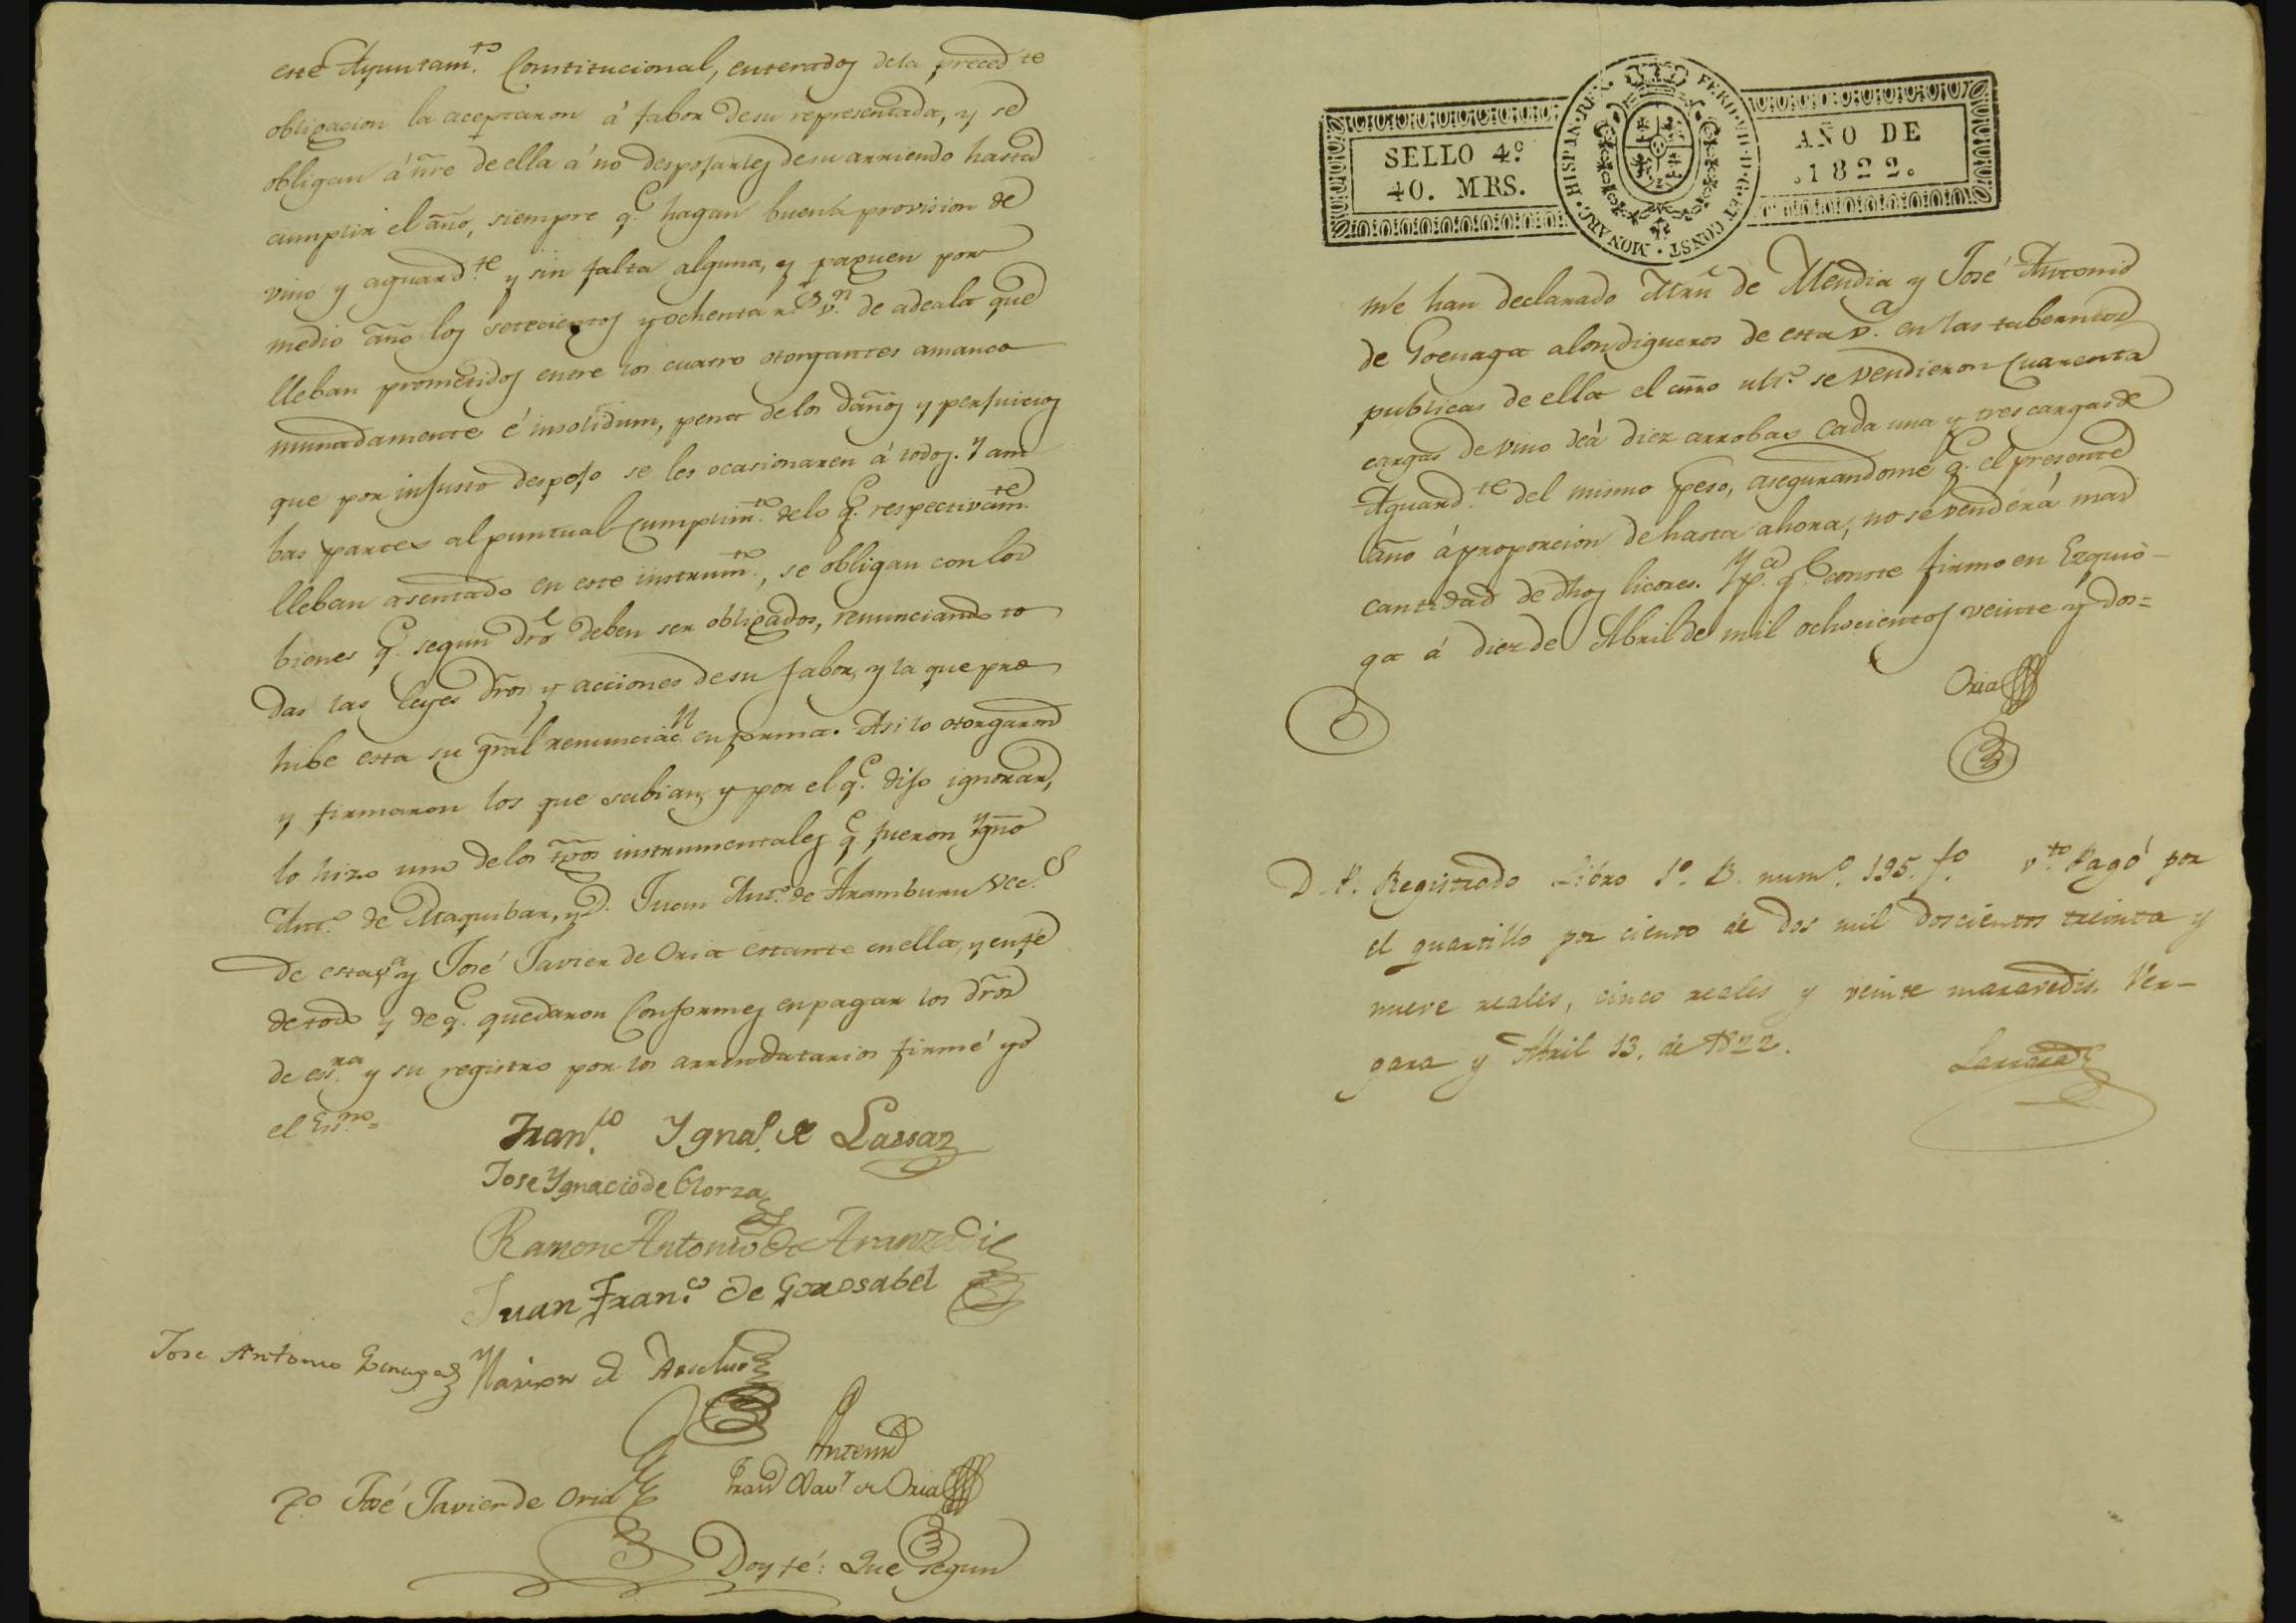 este Ayuntam.to Constitucional, enterados dela preced.te
obligacion la aceptaron á fabor desu representada, y se
obligan á ñre de ella á no despojarles desu arriendo hasta
cumplir el año, siempre q.e hagan buena provision de
vino y aguard.te y sin falta alguna, y paguen por
medio año los setecientos y ochenta r.s v.n de adeala que
lleban prometidos entre los cuatro otorgantes amanco
munadamente é insolidum, pena delos daños y perjuicios
que por injusto despojo se les ocasionaren á todos. Y am
bas partes al puntual cumplim.to delo q.e respectivam.te
lleban asentado en este instrum.to, se obligan con los
bienes q.e segun dro deben ser obligados, renunciando to
das las leyes dros y acciones desu fabor, y la que pro
hibe esta su gral renunciac.n en forma. Asi lo otorgaron
y firmaron los que sabian, y por el q.e dijo ignorar,
lo hizo uno delos tgos instrumentales q.e fueron Ygno
Ant.o de Maquibar, y D. Juan Ant.o de Aramburu vec.s
de esta v.a y José Javier de Oria estante en ella, y en fé
detodo y de q.e quedaron conformes en pagar los dros
de ess.ra y su registro por los arrendatarios firmé yo
el Ess.no =
Fran.co Ygna.o de Lassaz
Jose Ygnacio de Elorza
Ramon Antonio de Aranzadi
Juan Fran.co de Gorosabel
Jose Antonio Goenaga
de
Antemi
Xav.r de Oria
T.o José Javier de Oria
Doy fé: Que segun
SELLO 4.o
40. MRS.
HISPAN. REX. FERD. VII. D. G. ET CONST. MONARC.
AÑO DE
.1822.
me han declarado Mrn de Mendia y José Antonio
de Goenaga alondigueros de esta v.a en las tabernas
publicas de ella el año ult.o se vendieron cuarenta
cargas de vino deá diez arrobas cada una y tres cargas de
Aguard.te del mismo peso, asegurandome q.e el presente
año á proporcion de hasta ahora, no se venderá mas
cantidad de dhos licores. Y p.a q.e conste firmo en Ezquio-
ga á diez de Abril de mil ochocientos veinte y dos=
Oria
D. P. Registrado Libro 1.o B. num.o 195. f.o v.to Pagó por
el quartillo por ciento de dos mil doscientos treinta y
nueve reales, cinco reales y veinte maravedis. Ver-
gara y Abril 13. de 1822.